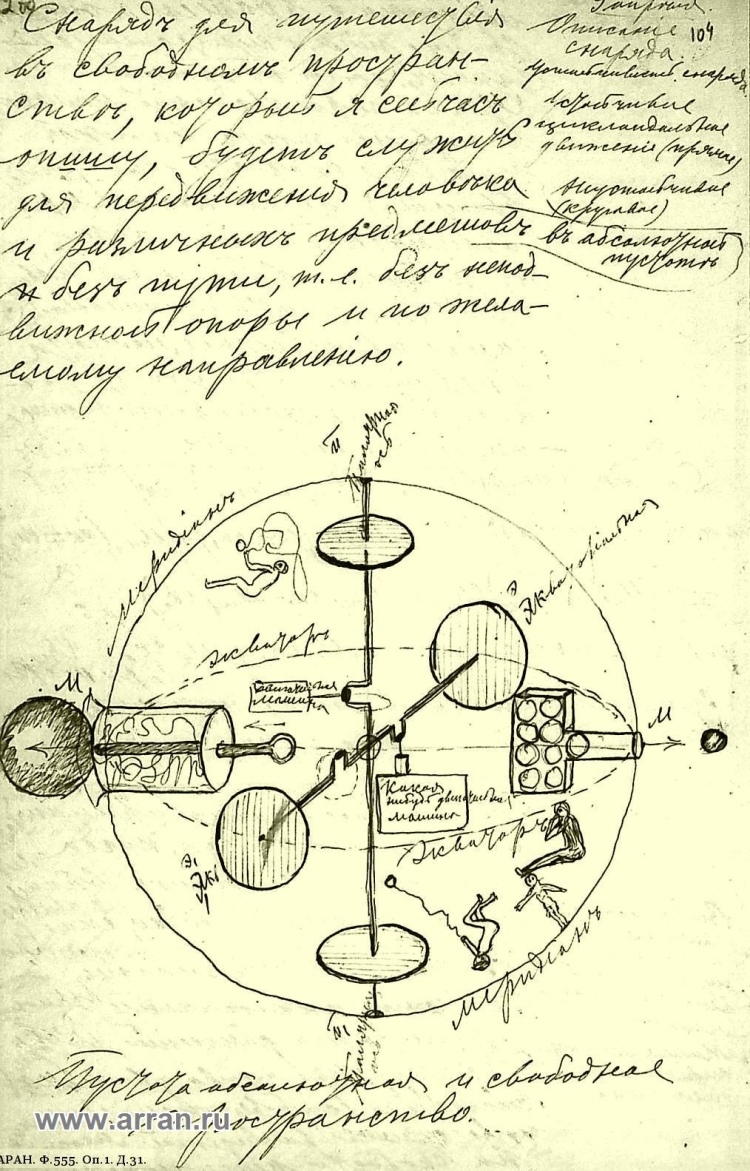 200
Снарядъ для путешествія
въ свободномъ простран-
ствѣ, который я сейчасъ
опишу, будетъ служить
для передвиженія человѣка
и различныхъ предметовъ
и безъ пути, т. е. безъ непод-
вижной опоры и по жела-
емому направленію.
104
Описаніе
снаряда.
движеніе (прямое)
(круговое)
въ абсолютной
пустотѣ
П
Полярная
ось
Меридіанъ
Э
Экваторіальная
Экваторъ
М
машина
М
Какая
нибудь двигательная
машина
Экваторъ
Э1
Меридіанъ
П1
Полярная
ось
Пустота абсолютная и свободное
пространство.
www.arran.ru
АРАН. Ф.555. Оп.1. Д.31.